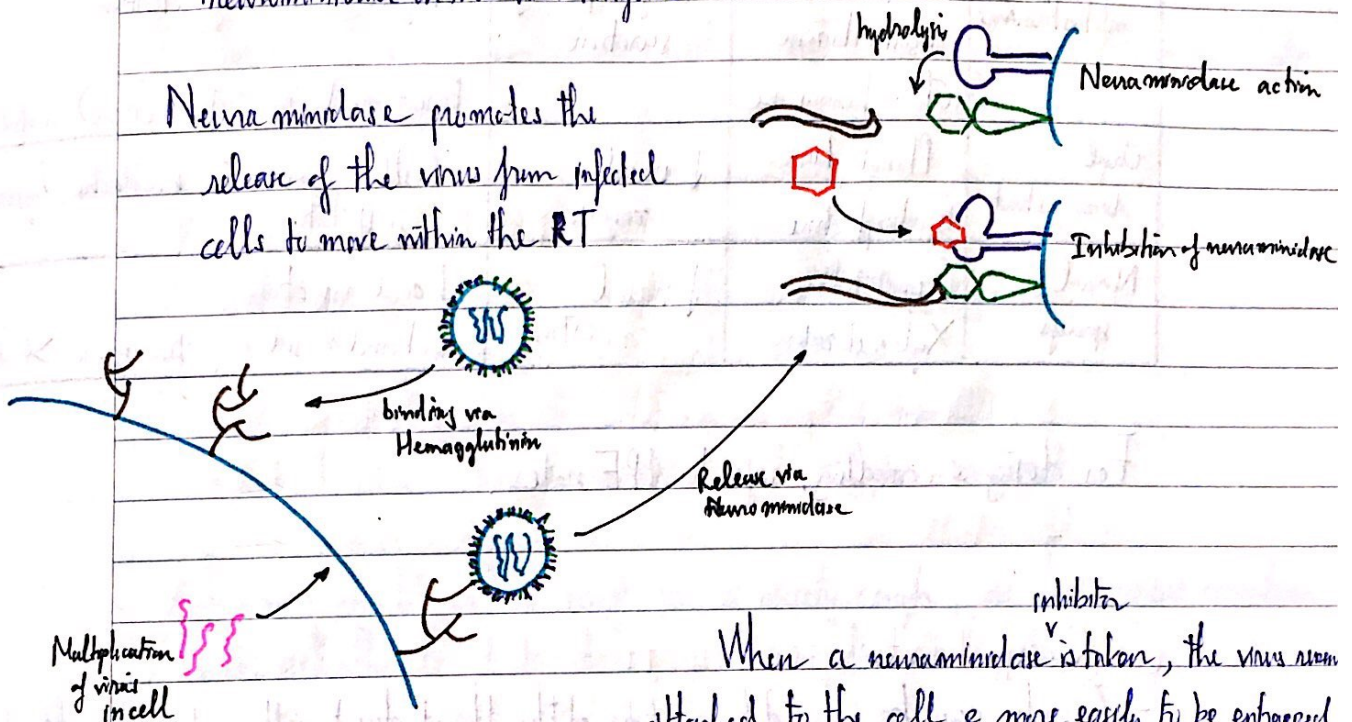 hydrolysis
Neuraminidase action
Neuraminidase promotes the
release of the virus from infected
cells to move within the RT
Inhibition of neuraminidase
binding via
Hemagglutinin
Release via
Neurominidase
Multiplication
of virus
in cell
inhibitor
When a neuraminidase is taken, the virus
attached to the cell & more easily to be